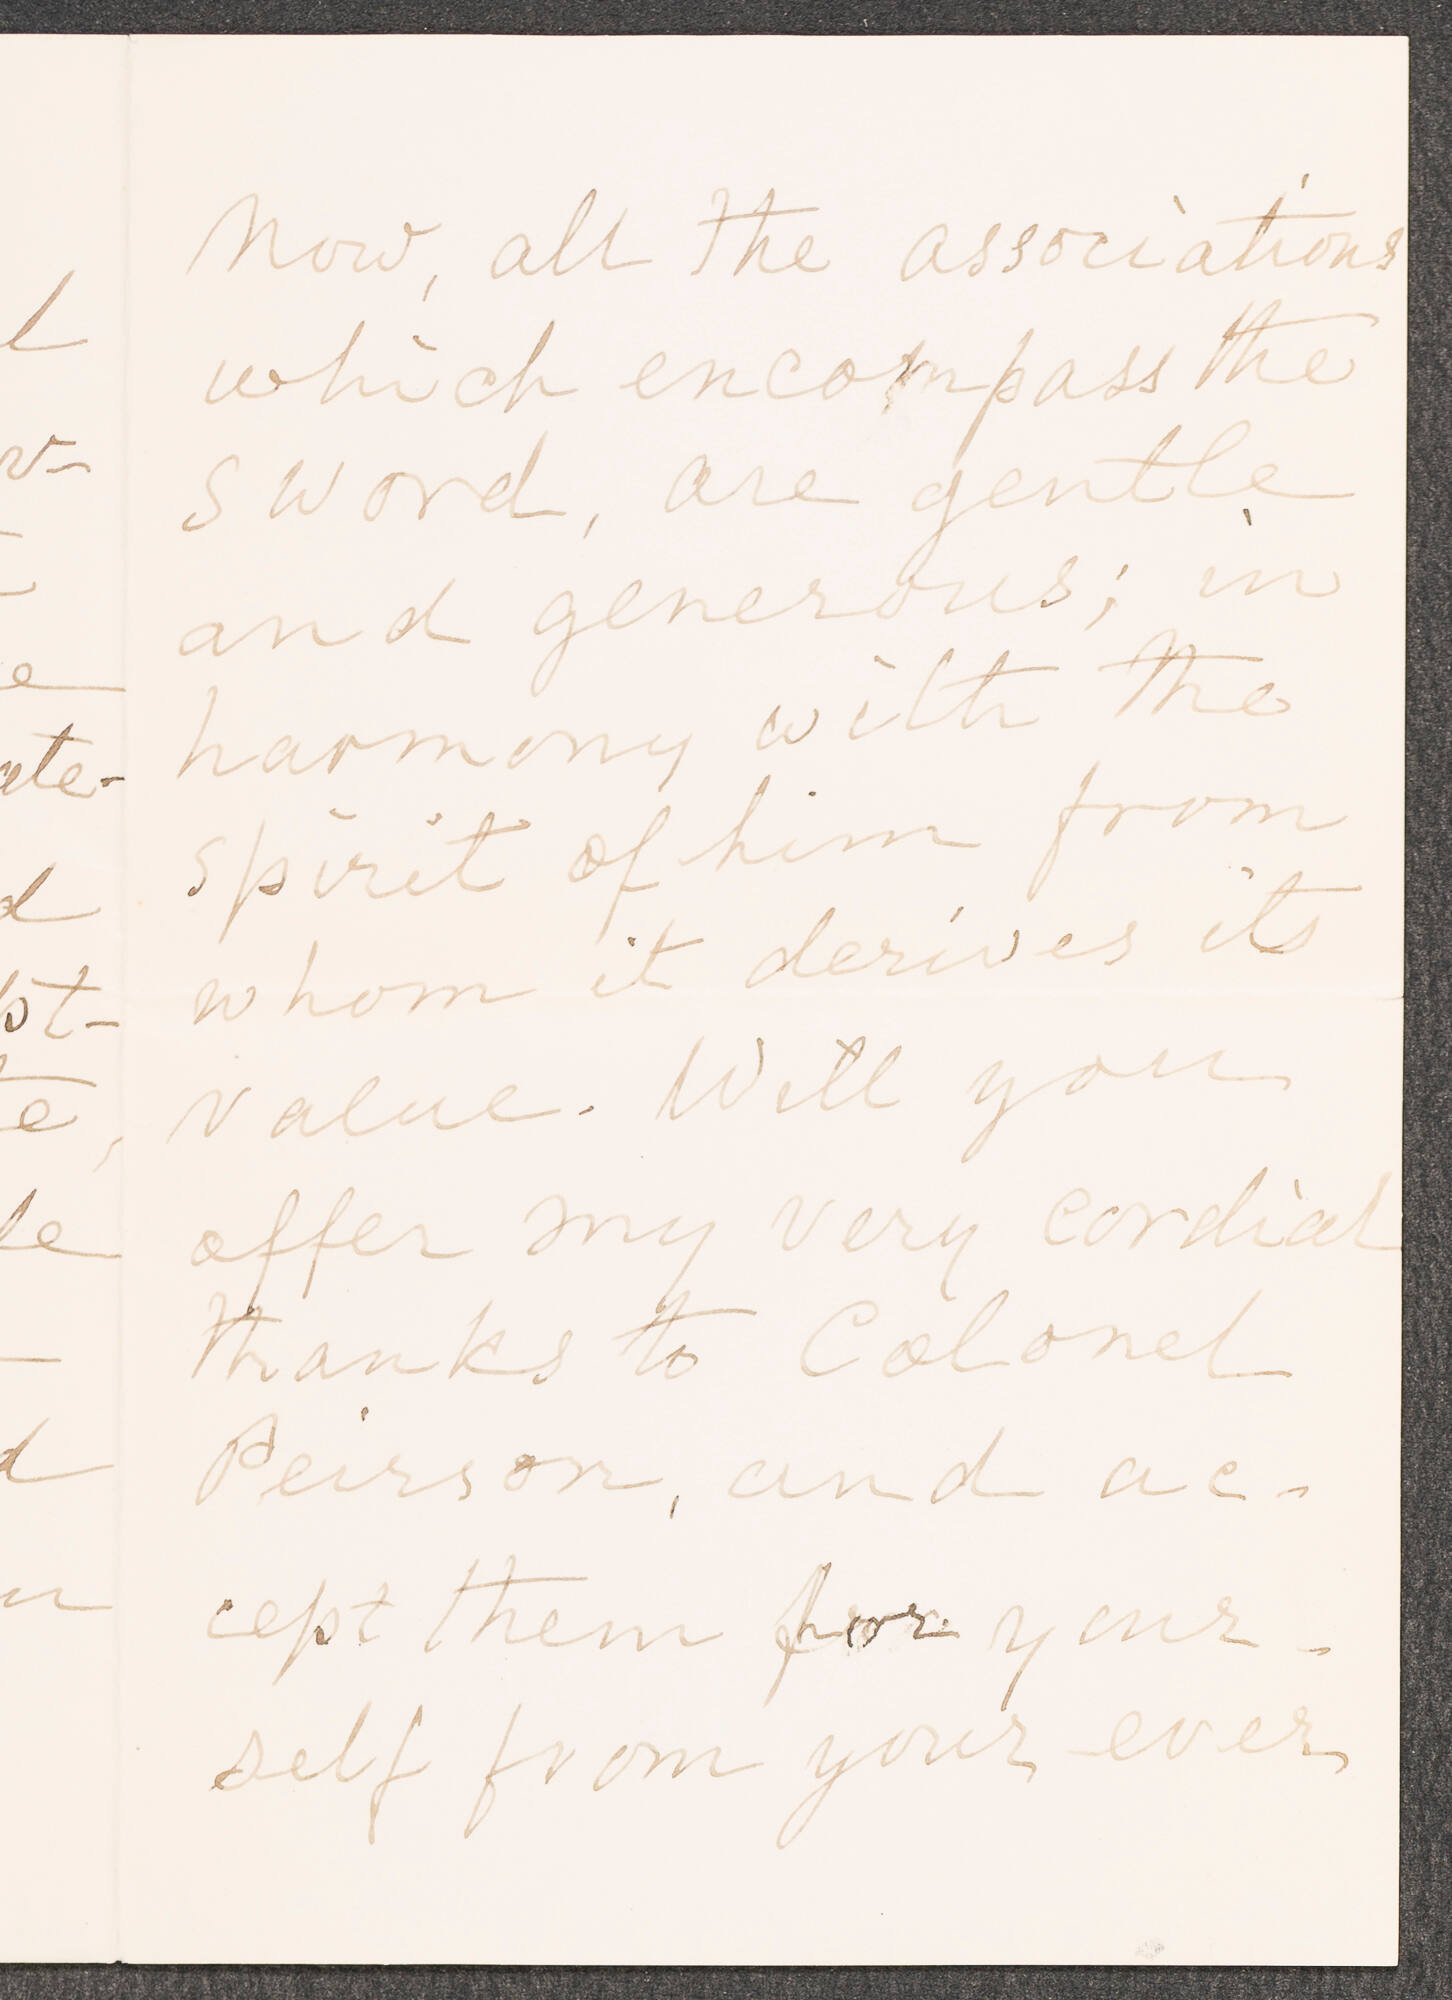 Now, all the associations
which encompass the
sword, are gentle
and generous; in
harmony with the
spirit of him from
whom it derives its
value. Will you
offer my very cordial
thanks to Colonel
Peirson, and ac-
cept them for your-
self from your ever